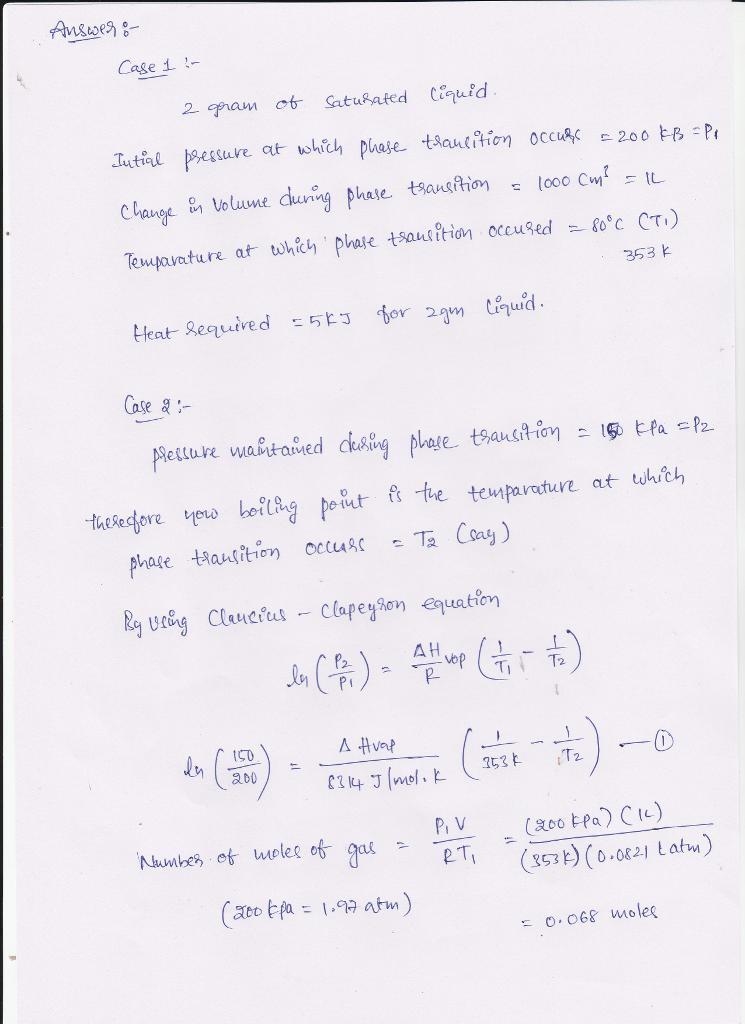 Answer :-
Case 1 :-
2 gram of saturated liquid.
Intial pressure at which phase transition occurs = 200 KPa = P1
Change in volume during phase transition = 1000 Cm³ = 1L
Temparature at which phase transition occured = 80°C (T1)
353 K
Heat required = 5KJ for 2gm liquid.
Case 2 :-
pressure maintained during phase transition = 150 KPa = P2
therefore now boiling point is the temparature at which
phase transition occurs = T2 (say)
By using Clausius - Clapeyron equation
ln (P2/P1) = ΔHvap/R (1/T1 - 1/T2)
ln (150/200) = ΔHvap/8.314 J/mol.K (1/353K - 1/T2) — ①
Number of moles of gas = P1V/RT1 = (200 KPa) (1L)/(353K) (0.0821 L atm)
(200 KPa = 1.97 atm)
= 0.068 moles